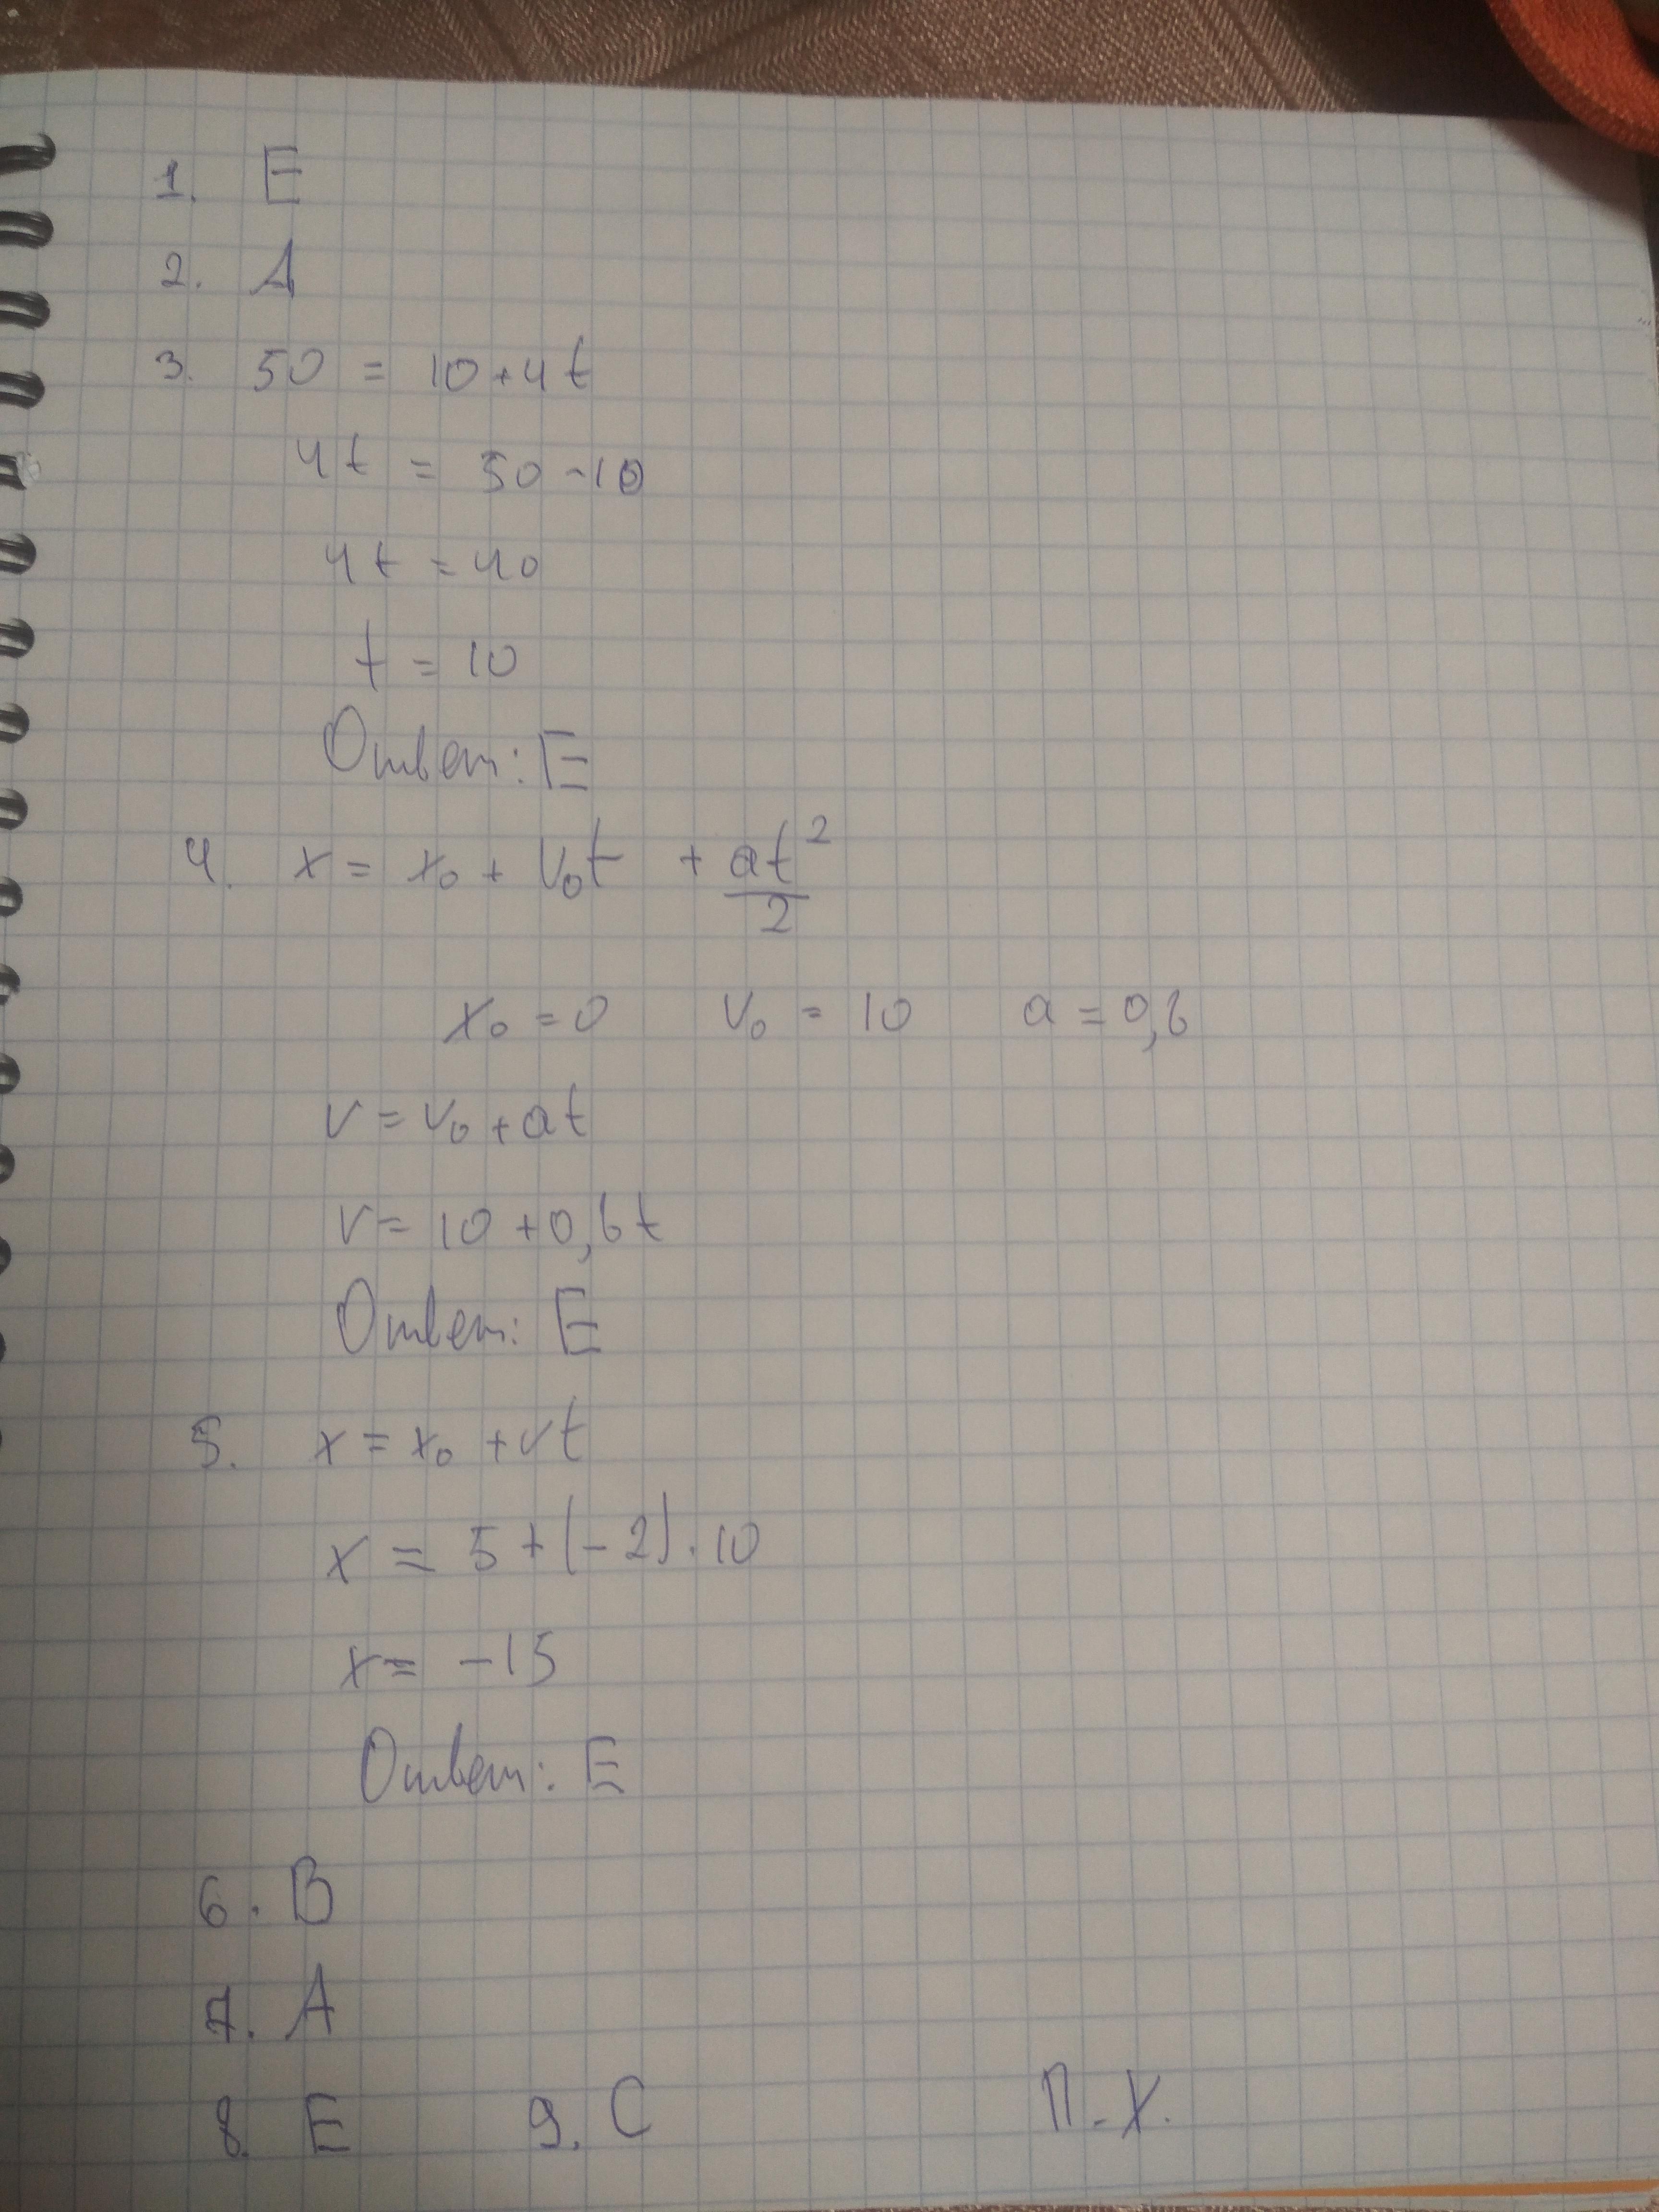 1. E
2. A
3. 50 = 10+4t
4t = 50-10
4t = 40
t = 10
Ответ: E
4. x = x₀ + v₀t + at²/2
x₀ = 0 v₀ = 10 a = 0,6
v = v₀ + at
v = 10 + 0,6t
Ответ: E
5. x = x₀ + vt
x = 5 + (-2) · 10
x = -15
Ответ: E
6. B
7. A
8. E 9. C П.Х.